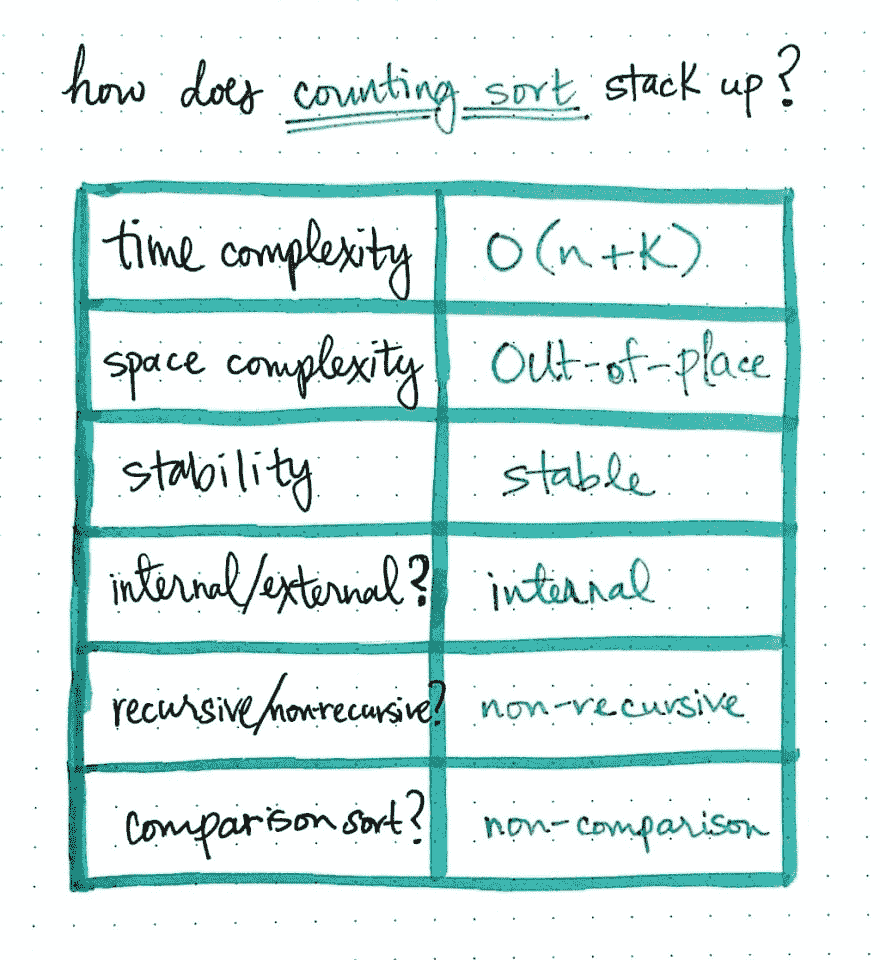 how does counting sort stack up?
time complexity O(n+k)
space complexity Out-of-place
stability stable
internal/external? internal
recursive/nonrecursive? non-recursive
comparison sort? non-comparison